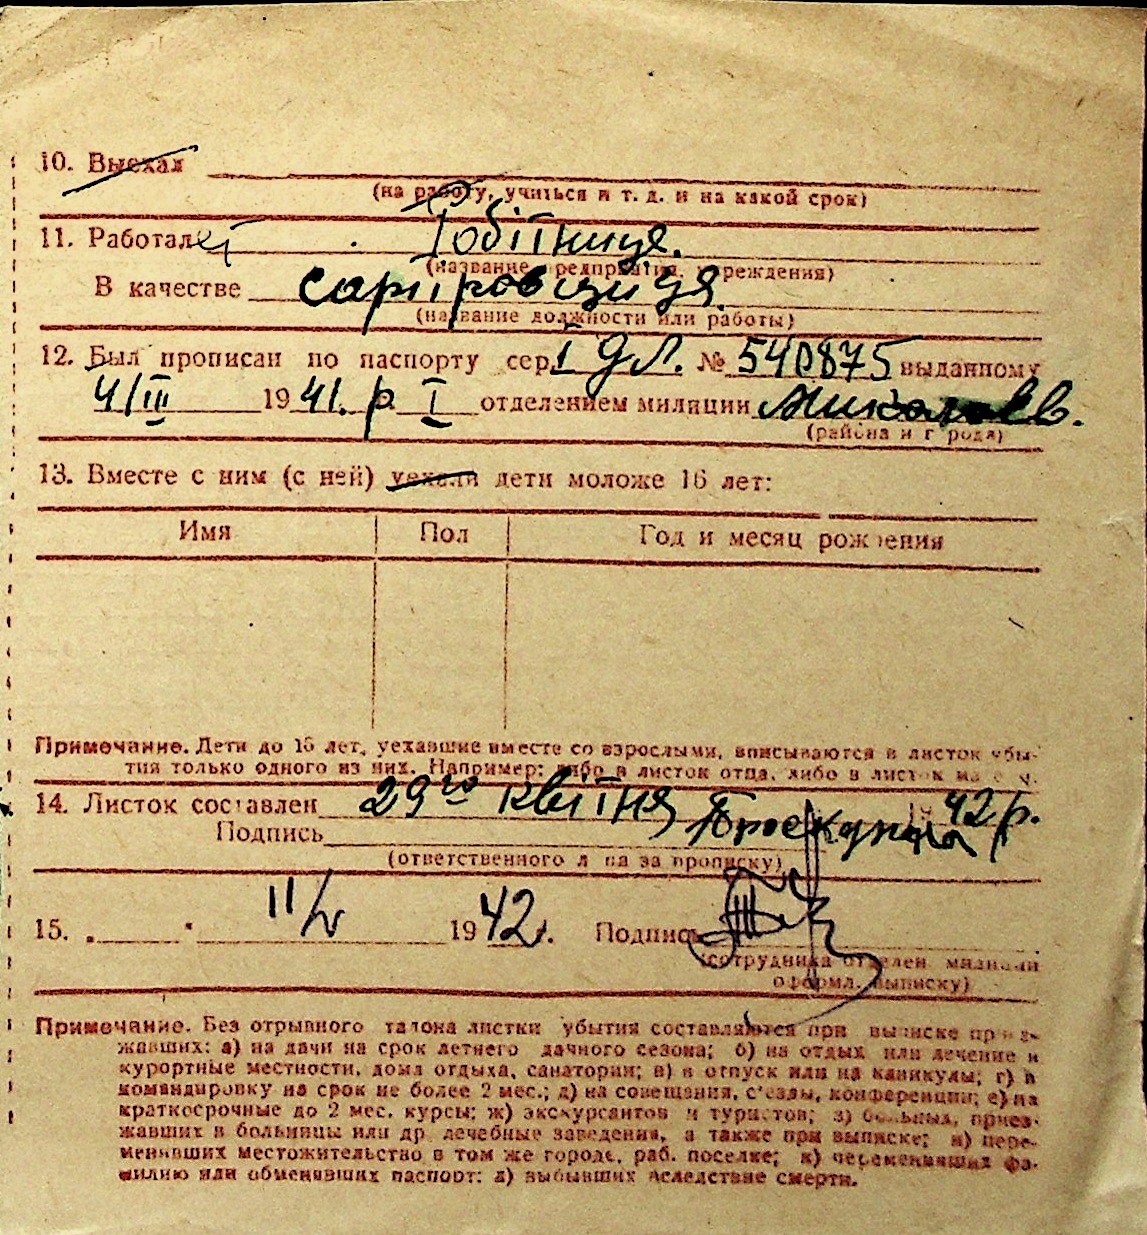 10. Выехал
(на работу, учиться и т. д. и на какой срок)
11. Работал
(название предприятия, учреждения)
В качестве
(название должности или работы)
12. Был прописан по паспорту сер. I ДЛ. № 540875 выданному
4/III 1941. р. I отделением милиции Миколаєв.
(района и города)
13. Вместе с ним (с ней) уехали дети моложе 16 лет:
Имя Пол Год и месяц рождения
Примечание. Дети до 16 лет, уехавшие вместе со взрослыми, вписываются в листок убы-
тия только одного из них. Например: либо в листок отца, либо в листок
14. Листок составлен 29го квітня 1942 р.
Подпись
(ответственного лица за прописку)
15. 11/V 1942 Подпись
(сотрудника отделен милиции
оформл. выписку)
Примечание. Без отрывного талона листки убытия составляются при выписке приез-
жавших: а) на дачи на срок летнего дачного сезона; б) на отдых или лечение и
курортные местности, дома отдыха, санатории; в) в отпуск или на каникулы; г) в
командировку на срок не более 2 мес.; д) на совещания, с'езды, конференции; е) на
краткосрочные до 2 мес. курсы; ж) экскурсантов и туристов; з) больных, приез-
жавших в больницы или др. лечебные заведения, а также при выписке; и) пере-
менивших местожительство в том же городе, раб. поселке; к) переменивших фа-
милию или обменявших паспорт; л) выбывших вследствие смерти.